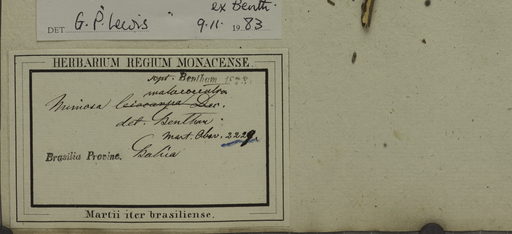 ex Benth.
DET G. P. Lewis 9.11. 1983
HERBARIUM REGIUM MONACENSE.
sept. Bentham
malacocentra
Mimosa leiocarpa Dec.
det. Bentham.
Mart. Obsv. 2229.
Brasilia Provinc. Bahia
Martii iter brasiliense.